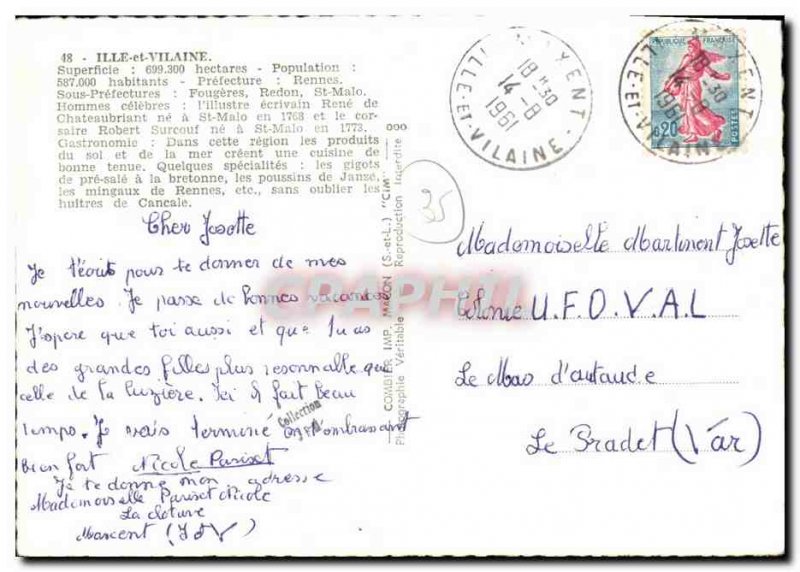 48 - ILLE-et-VILAINE.
Superficie : 699.300 hectares - Population :
587.000 habitants - Préfecture : Rennes.
Sous-Préfectures : Fougères, Redon, St-Malo.
Hommes célèbres : l'illustre écrivain René de
Chateaubriant né à St-Malo en 1768 et le cor-
saire Robert Surcouf né à St-Malo en 1773.
Gastronomie : Dans cette région les produits
du sol et de la mer créent une cuisine de
bonne tenue. Quelques spécialités : les gigots
de pré-salé à la bretonne, les poussins de Janzé,
les mingaux de Rennes, etc., sans oublier les
huîtres de Cancale.
Cher Josette
Je t'écris pour te donner de mes
nouvelles. Je passe de bonnes vacances
J'spere que toi aussi et que tu as
des grandes filles plus resonnable que
celle de la Luzière. Ici il fait beau
temps. Je vais terminé en t'embrassant
bien fort Nicole Pariset
Je te donne mon adresse
Mademoiselle Pariset Nicole
La cloture
Marcent (I&V)
COMBIER IMP. MACON (S.-et-L.) "CIM"
Photographie Véritable Reproduction Interdite
000
35
CPAPHIL
Collection
MOYENT
18 H 30
14-8
1961
ILLE-ET-VILAINE
REPUBLIQUE FRANÇAISE
0,20
POSTES
18 30
1961
ILLE-ET-VILAINE
Mademoiselle Martinent Josette
Colonie U.F.O.V.A.L
Le Mas d'artaude
Le Pradet (Var)